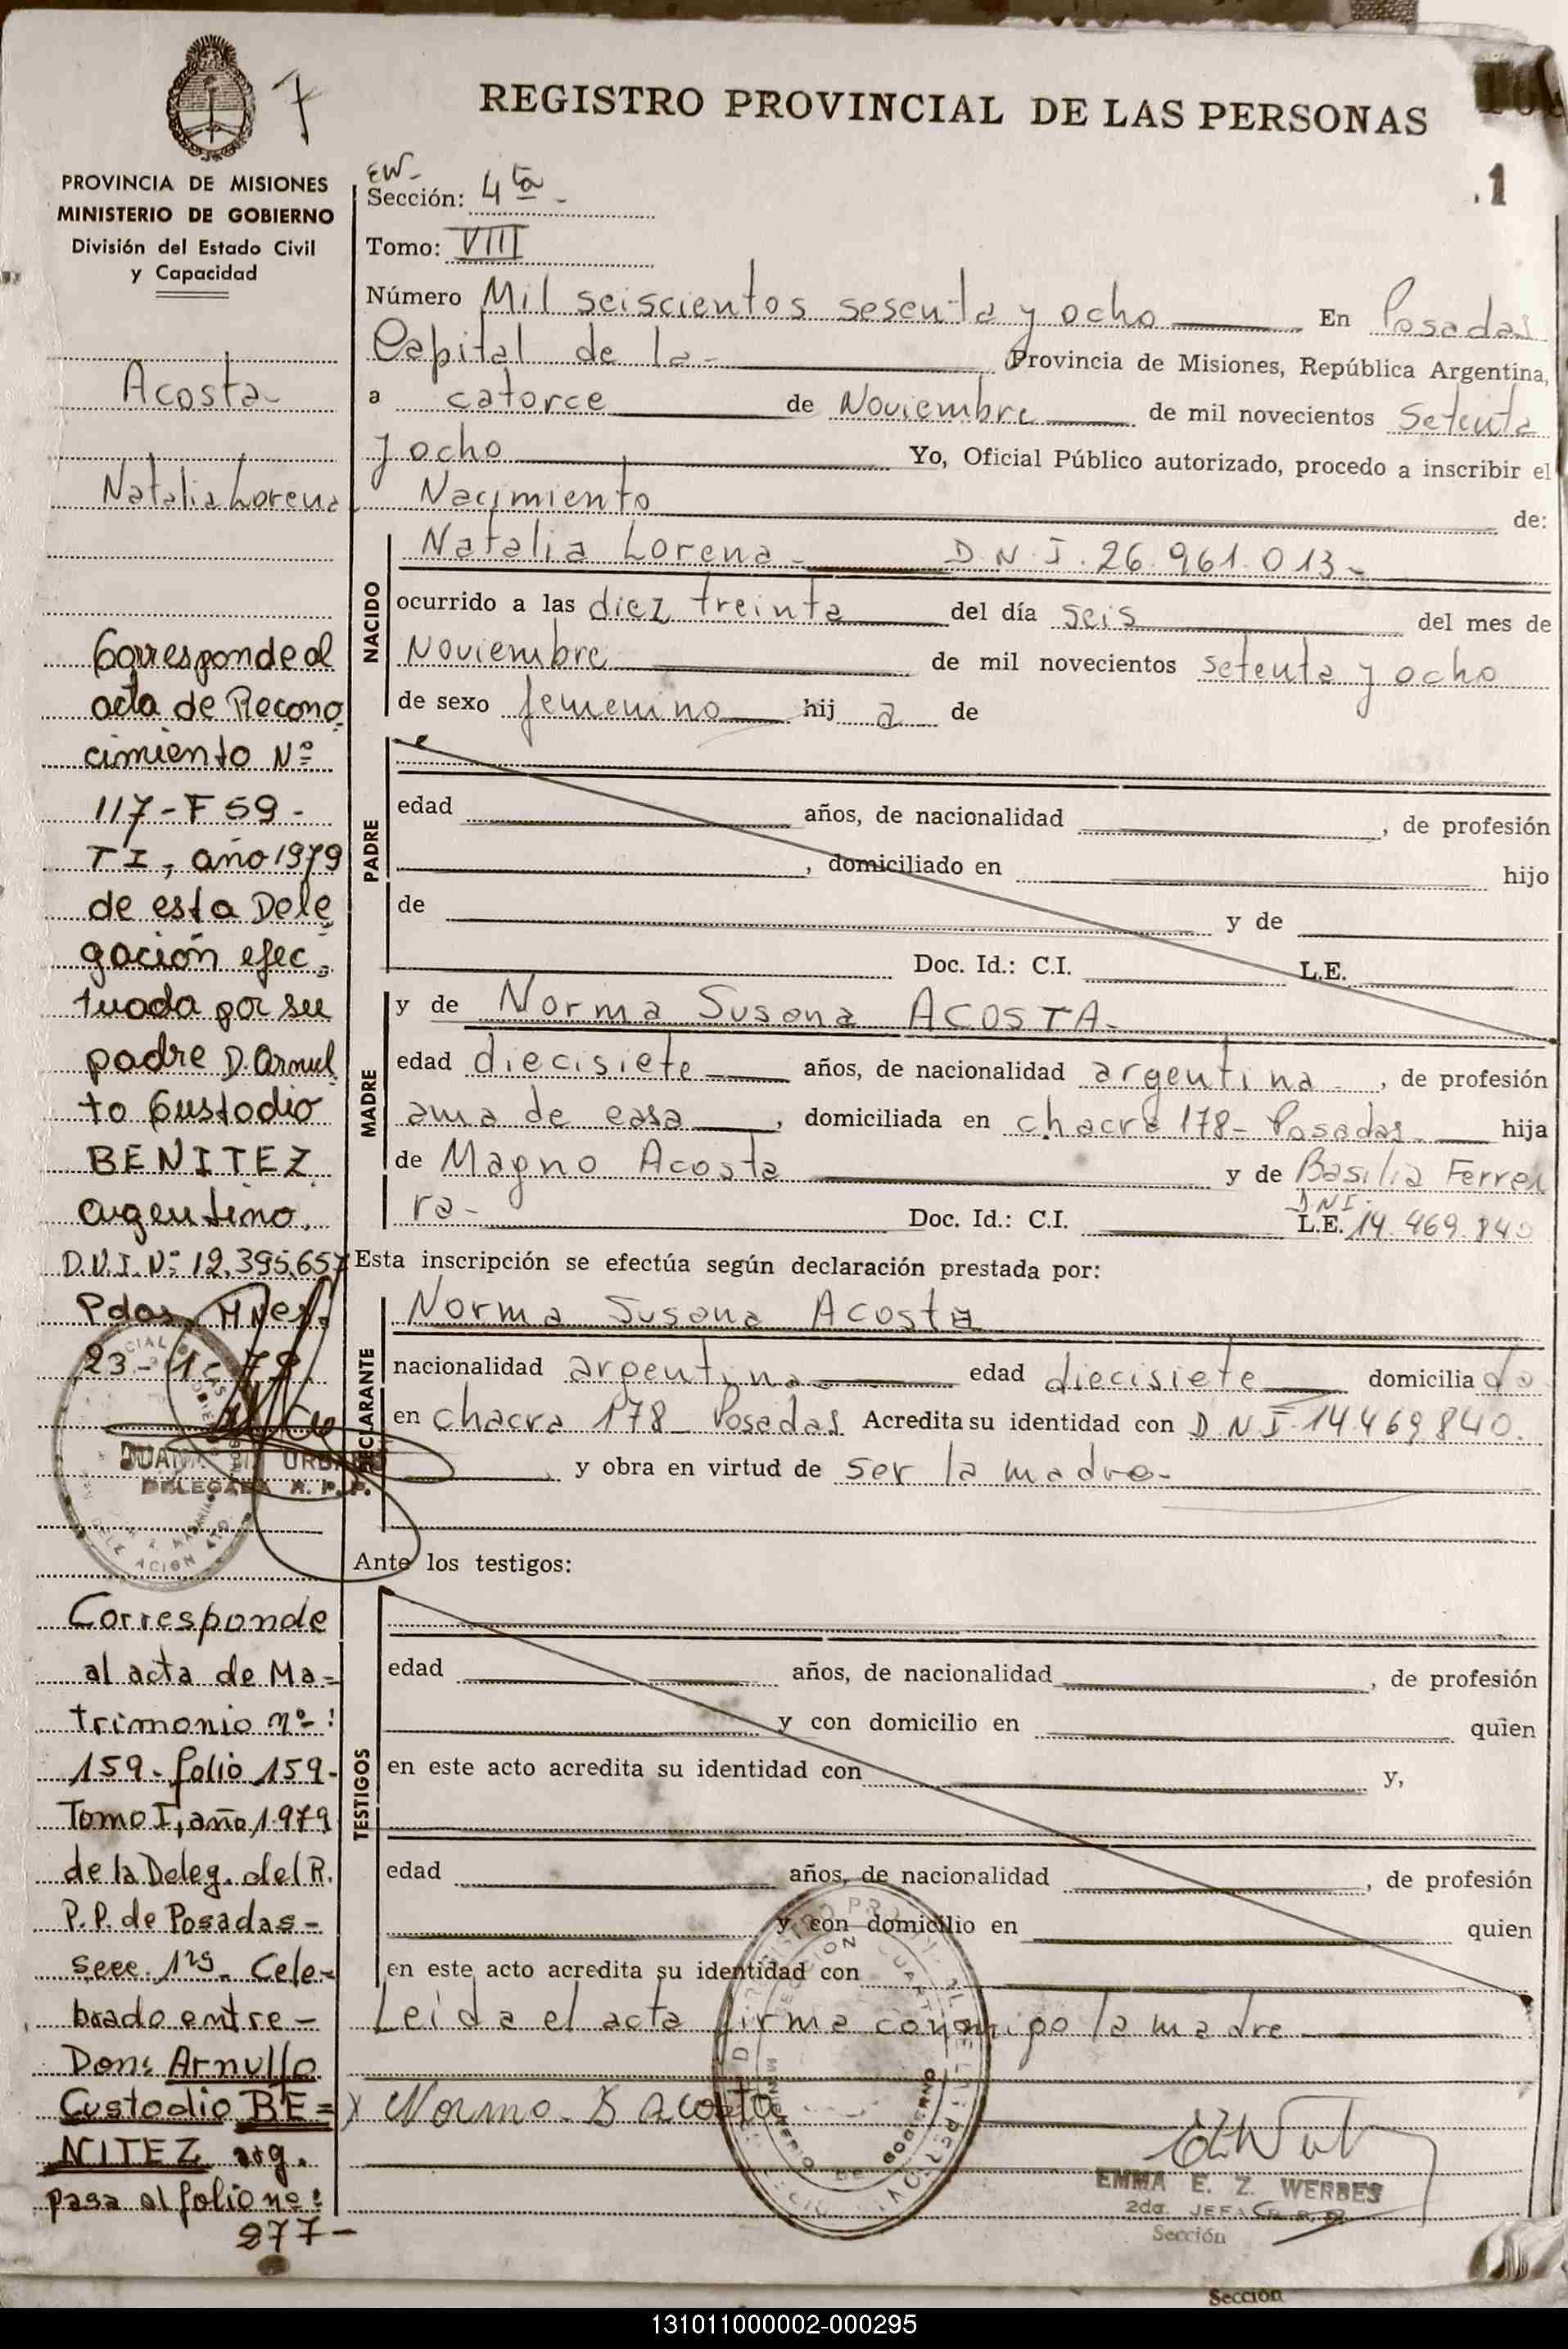 7
REGISTRO PROVINCIAL DE LAS PERSONAS
.1
PROVINCIA DE MISIONES
MINISTERIO DE GOBIERNO
División del Estado Civil
y Capacidad
EW-
Sección: 4ta -
Tomo: VIII
Número Mil seiscientos sesenta y ocho En Posadas
Capital de la- Provincia de Misiones, República Argentina,
a catorce de Noviembre de mil novecientos setenta
y ocho Yo, Oficial Público autorizado, procedo a inscribir el
Nacimiento de:
Acosta-
Natalia Lorena
NACIDO
Natalia Lorena- D.N.I. 26.961.013-
ocurrido a las diez treinta del día seis del mes de
Noviembre de mil novecientos setenta y ocho
de sexo femenino hij a de
PADRE
edad años, de nacionalidad , de profesión
, domiciliado en hijo
de y de
Doc. Id.: C.I. L.E.
MADRE
y de Norma Susana ACOSTA-
edad diecisiete años, de nacionalidad argentina , de profesión
ama de casa , domiciliada en chacra 178- Posadas- hija
de Magno Acosta y de Basilia Ferrei
ra- Doc. Id.: C.I. L.E. DNI. 14.469.840
Esta inscripción se efectúa según declaración prestada por:
DECLARANTE
Norma Susana Acosta
nacionalidad argentina edad diecisiete domicilia da
en chacra 178 Posadas Acredita su identidad con D.N.I. 14.469.840.
y obra en virtud de ser la madre-
Ante los testigos:
TESTIGOS
edad años, de nacionalidad , de profesión
y con domicilio en quien
en este acto acredita su identidad con y,
edad años, de nacionalidad , de profesión
y con domicilio en quien
en este acto acredita su identidad con
Leida el acta firma conmigo la madre
x Norma S Acosta
EMMA E. Z. WERBES
2da. JEFA
Sección
Corresponde al
acta de Recono
cimiento Nº
117-F 59-
T I, año 1979
de esta Dele
gación efec-
tuada por su
padre D. Arnul
fo Custodio
BENITEZ
argentino.
D.N.I. Nº 12.395.657
Pdas. Mnes.
23-1-79
DELEGADA R. P. P.
Corresponde
al acta de Ma-
trimonio nº:
159- folio 159-
Tomo I, año 1979
de la Deleg. del R.
P.P. de Posadas-
secc. 1ra. Cele-
brado entre-
Don: Arnulfo
Custodio BE=
NITEZ arg.
pasa al folio nº:
277-
Sección
131011000002-000295